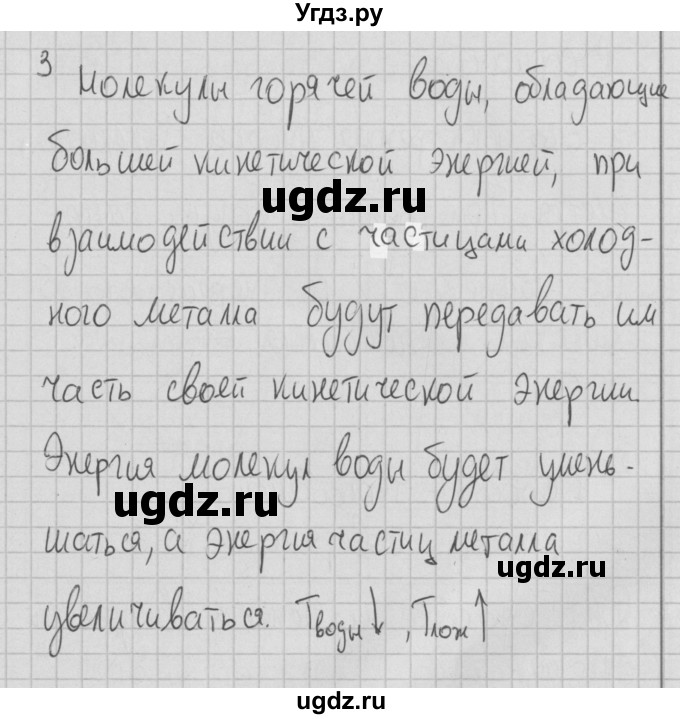 Угдз.ру
3 Молекулы горячей воды, обладающие
большей кинетической энергией, при
ugdz.ru
взаимодействии с частицами холод-
ного металла будут передавать им
ugdz.ru
часть своей кинетической энергии.
Энергия молекул воды будет умень-
ugdz.ru
шаться, а энергия частиц металла
ugdz.ru
увеличиваться. Tводы↓, Tлож↑
ugdz.ru